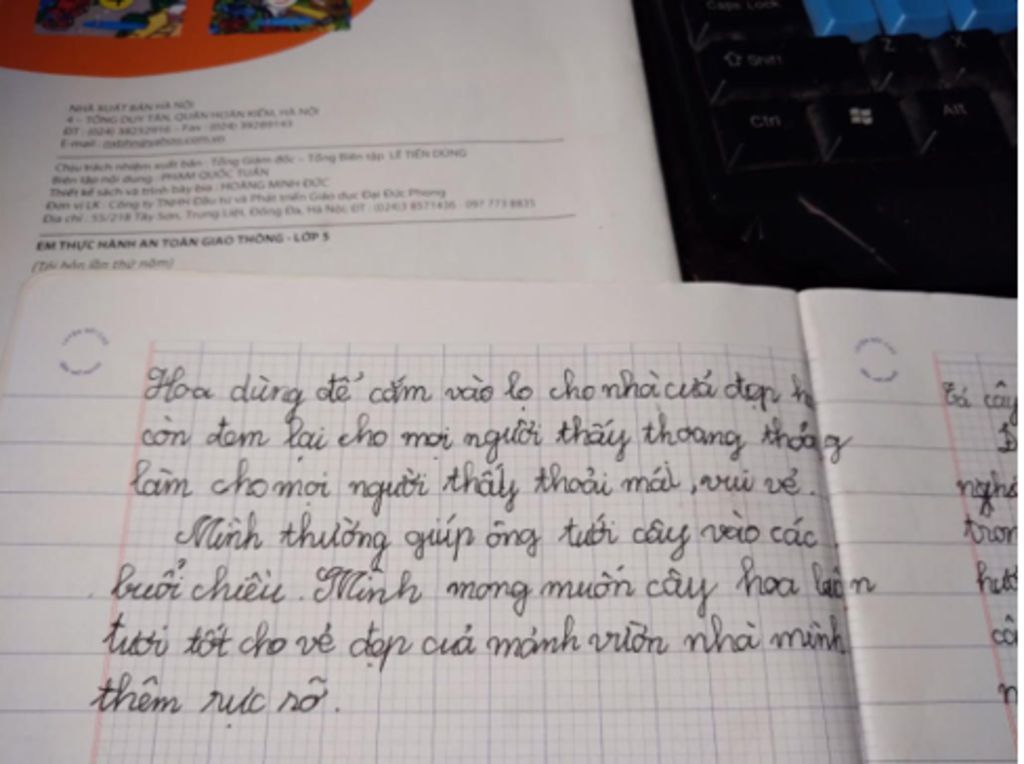 Caps Lock
Shift
Z
X
Ctrl
Alt
NHÀ XUẤT BẢN HÀ NỘI
4 – TỐNG DUY TÂN, QUẬN HOÀN KIẾM, HÀ NỘI
ĐT : (024) 38252916 – Fax : (024) 39289143
E-mail : nxbhn@yahoo.com.vn
Chịu trách nhiệm xuất bản : Tổng Giám đốc – Tổng Biên tập LÊ TIẾN DŨNG
Biên tập nội dung : PHẠM QUỐC TUẤN
Thiết kế sách và trình bày bìa : HOÀNG MINH ĐỨC
Đơn vị LK : Công ty TNHH Đầu tư và Phát triển Giáo dục Đại Đức Phong
Địa chỉ : 55/218 Tây Sơn, Trung Liệt, Đống Đa, Hà Nội; ĐT : (024)3 8571436 - 097 773 8835
EM THỰC HÀNH AN TOÀN GIAO THÔNG - LỚP 5
(Tái bản lần thứ năm)
Hoa dùng để cắm vào lọ cho nhà cửa đẹp h
còn đem lại cho mọi người thấy thoang thoảng
làm cho mọi người thấy thoải mái, vui vẻ.
Mình thường giúp ông tưới cây vào các
buổi chiều. Mình mong muốn cây hoa luôn
tươi tốt cho vẻ đẹp củả mảnh vườn nhà mình
thêm rực rỡ.
cây